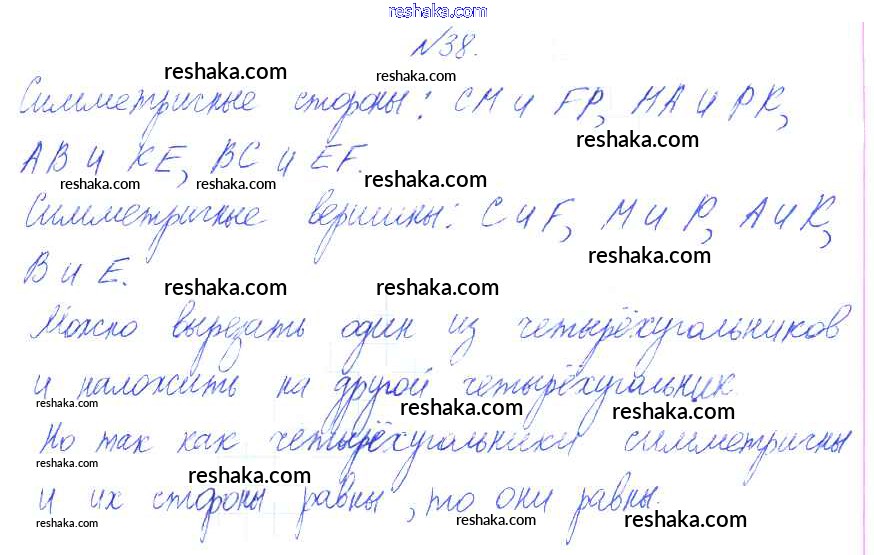 reshaka.com
N38.
reshaka.com reshaka.com
Симметричные стороны: СМ и FP, МА и РК,
reshaka.com
АВ и КЕ, ВС и EF.
reshaka.com reshaka.com reshaka.com
Симметричные вершины: С и F, М и Р, А и К,
reshaka.com
В и Е.
reshaka.com reshaka.com
Можно вырезать один из четырёхугольников
и наложить на другой четырёхугольник.
reshaka.com reshaka.com reshaka.com
Но так как четырёхугольники симметричны
reshaka.com reshaka.com
и их стороны равны, то они равны.
reshaka.com reshaka.com